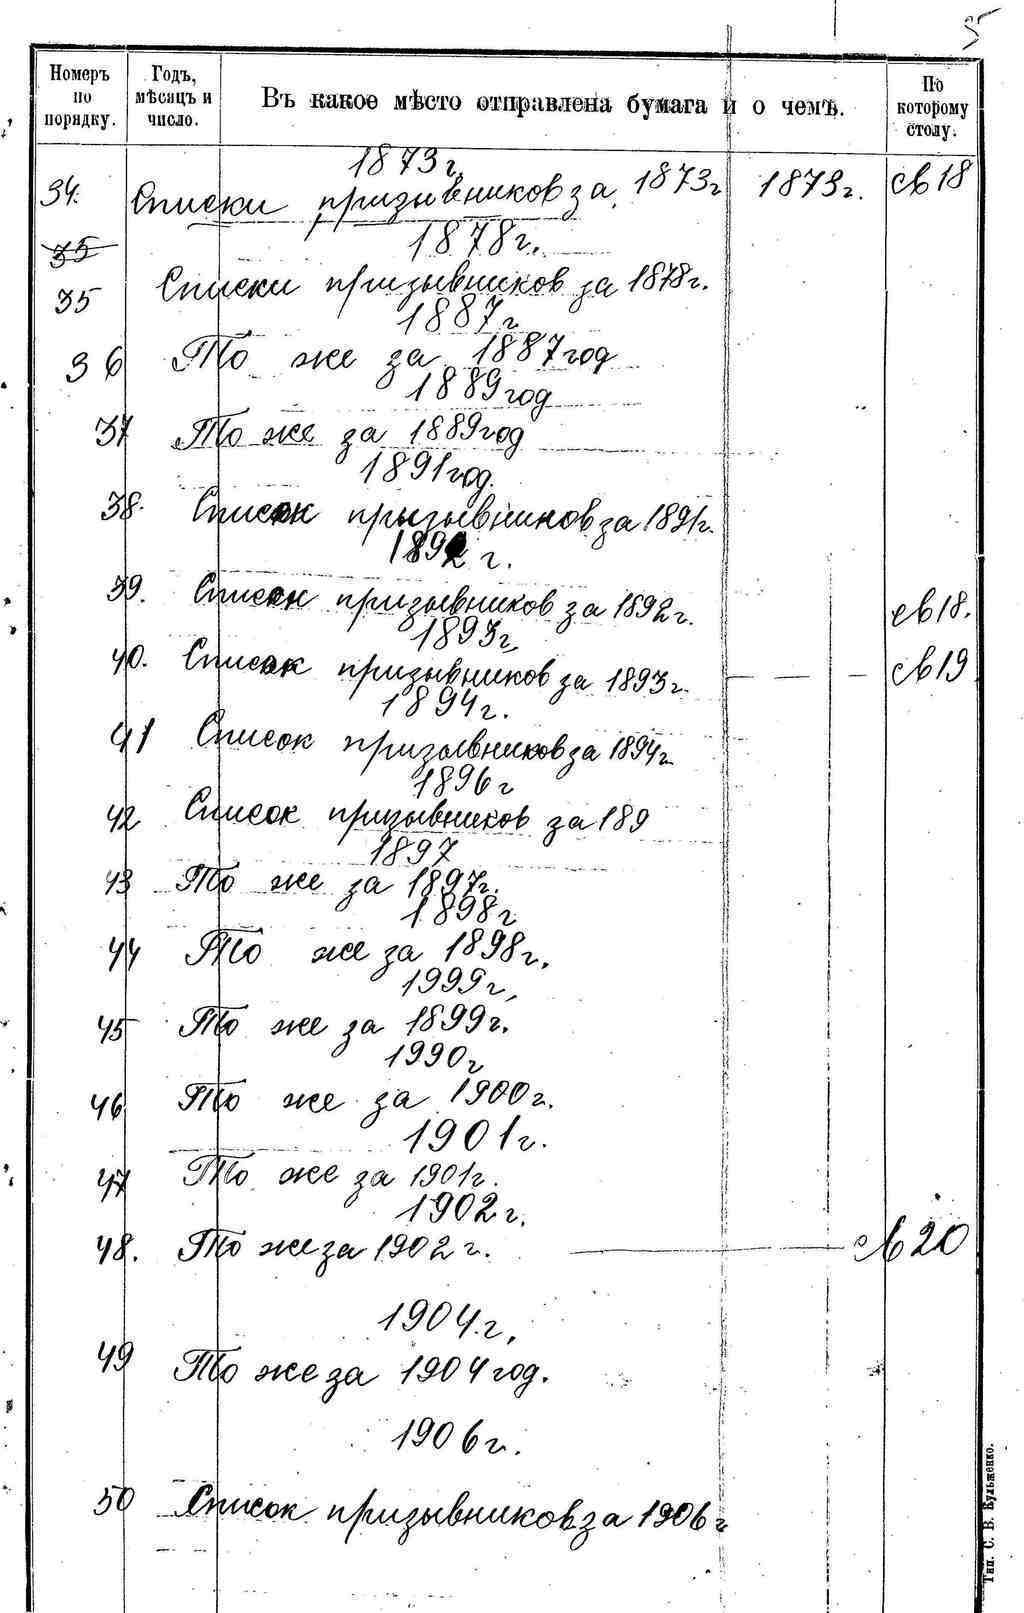 5
Номеръ по порядку.
Годъ, мѣсяцъ и число.
Въ какое мѣсто отправлена бумага и о чемъ.
По которому столу.
1873 г.
34. Списки призывников за 1873 г 1873 г. св 18
35
1878 г.
35 Списки призывников за 1878 г.
1887 г
36 То же за 1887 год
1889 год
37 То же за 1889 год
1891 год.
38. Список призывников за 1891 г.
1892 г.
39. Список призывников за 1892 г. св 18.
1893 г.
40. Список призывников за 1893 г. св 19
1894 г.
41 Список призывников за 1894 г
1896 г
42 Список призывников за 189
1897
43 То же за 1897 г.
1898 г
44 То же за 1898 г.
1999 г.
45 То же за 1899 г.
1990 г
46 То же за 1900 г.
1901 г.
47 То же за 1901 г.
1902 г.
48. То же за 1902 г. св 20
1904 г.
49 То же за 1904 год.
1906 г.
50 Список призывников за 1906 г
Тип. С. В. Кульженко.